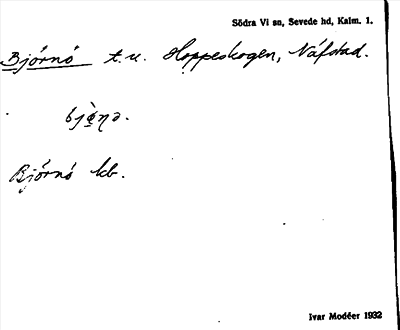 Södra Vi sn, Sevede hd, Kalm. l.
Björnö t.u. Hoppeskogen, Näfstad.
Björnö kb.
Ivar Modéer 1932